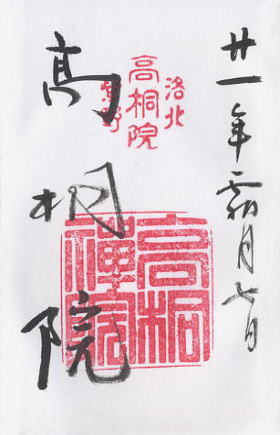 廿一年霜月七日
洛北
高桐院
紫野
髙桐院
高桐
禅院